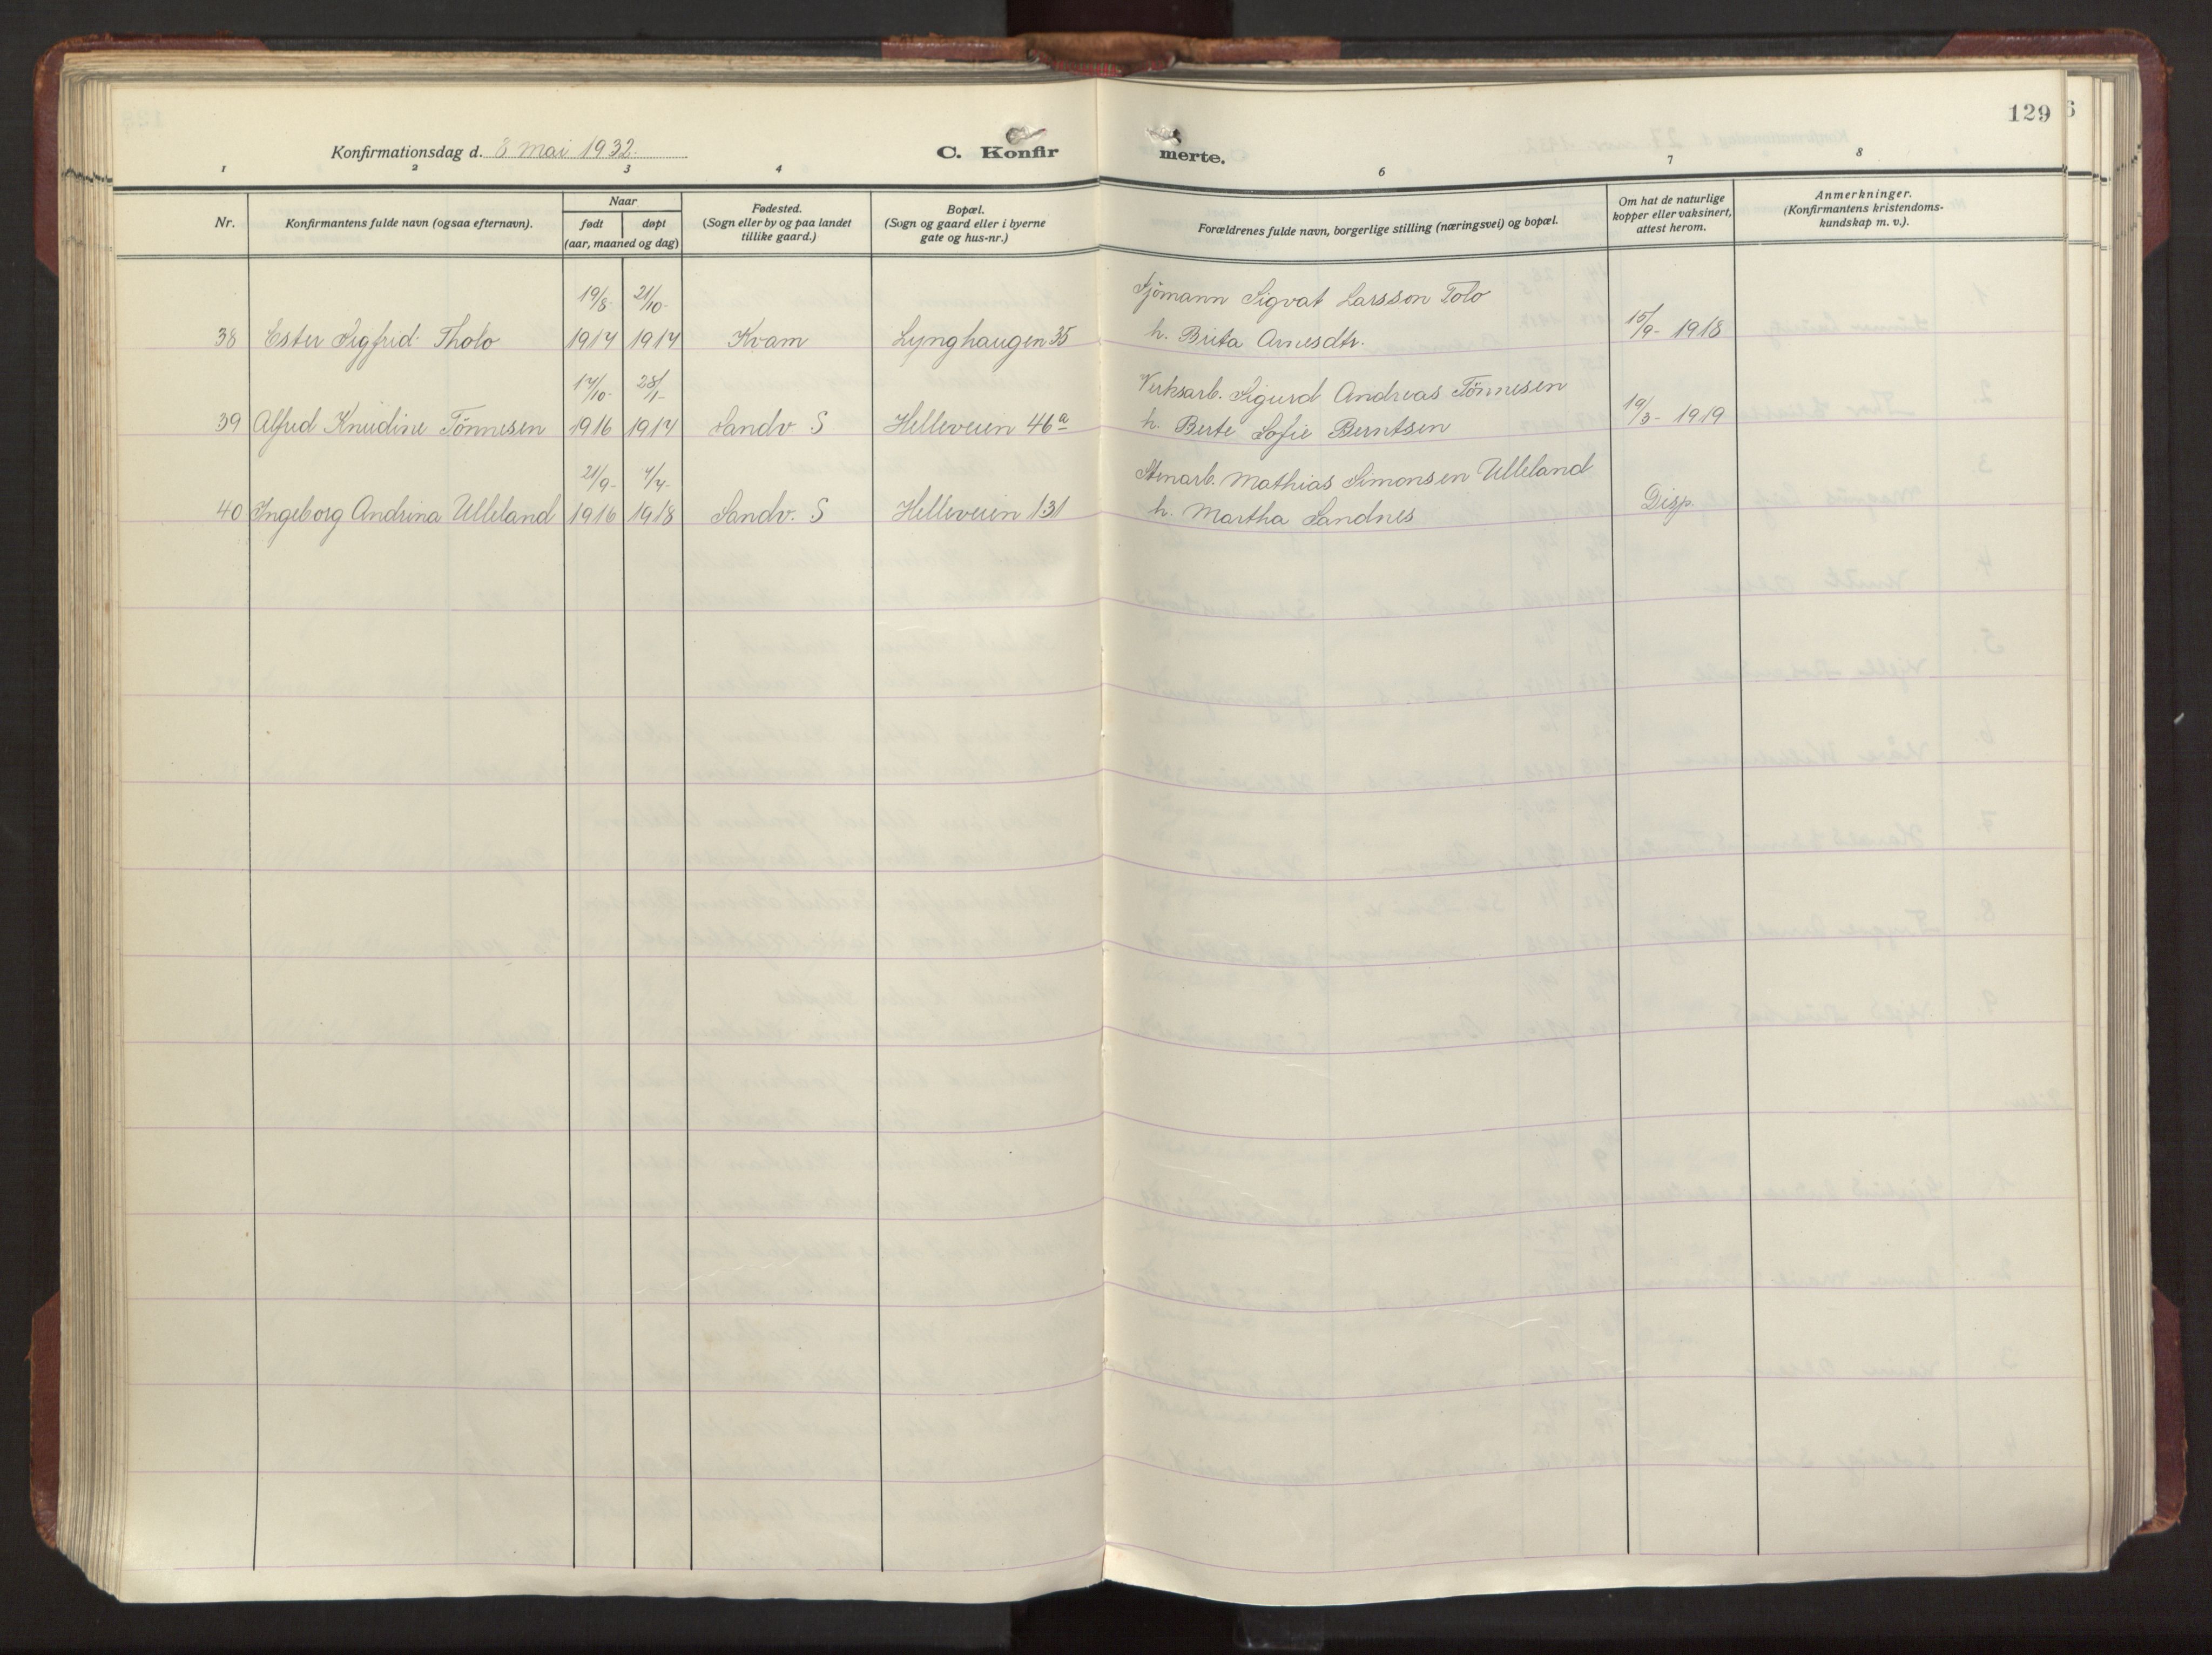 129
Konfirmationsdag d. 8 mai 1932. C. Konfirmerte.
1 2 3 4 6 7 8
Nr.
Konfirmantens fulde navn (ogsaa efternavn).
Naar
født døpt
(aar, maaned og dag)
Fødested.
(Sogn eller by og paa landet
tillike gaard.)
Bopæl.
(Sogn og gaard eller i byerne
gate og hus-nr.)
Forældrenes fulde navn, borgerlige stilling (næringsvei) og bopæl.
Om hat de naturlige
kopper eller vaksinert,
attest herom.
Anmerkninger.
(Konfirmantens kristendoms-
kundskap m. v.).
19/8- 21/10- Sjömann Sigvat Larsson Tolo
38 Ester Sigfrid Tholo 1917 1917 Kvam Lynghaugen 35 h. Brita Arnesdtr. 15/9- 1918
17/10- 28/1- Verksarb. Sigurd Andreas Tönnesen
39 Alfred Knudine Tönnesen 1916 1917 Sandv S Helleveien 46a h. Berte Sofie Berntsen 19/3- 1919
21/9- 7/7- Stenarb. Mathias Simonsen Ulleland
40 Ingeborg Andrina Ulleland 1916 1918 Sandv. S Helleveien 131 h. Martha Sandnes Disp.